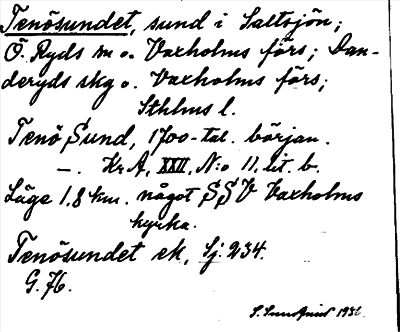 Tenösundet, sund i Saltsjön;
Ö. Ryds sn o. Vaxholms förs; Dan-
deryds skg o. Vaxholms förs;
Sthlms l.
Tenö Sund, 1700-tal. början.
—. Kr A, XXII, N:o 11, lit. b.
Läge 1,8 km. något SSV Vaxholms
kyrka.
Tenösundet ek, Sj: 234.
G. 76.
1936